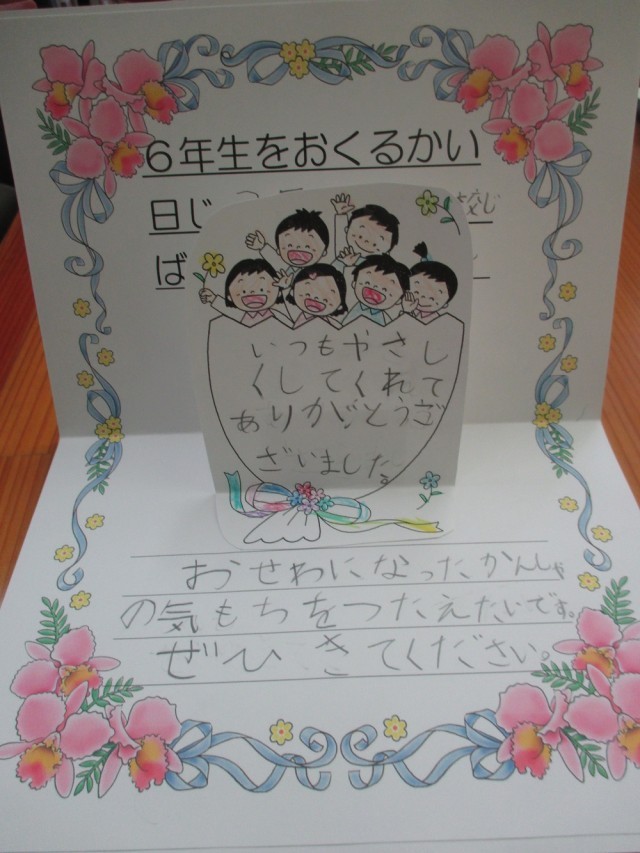 ６年生をおくるかい
日じ
校じ
ば
いつもやさし
くしてくれて
ありがとうご
ざいました。
おせわになったかんしゃ
の気もちをつたえたいです。
ぜひ きてください。